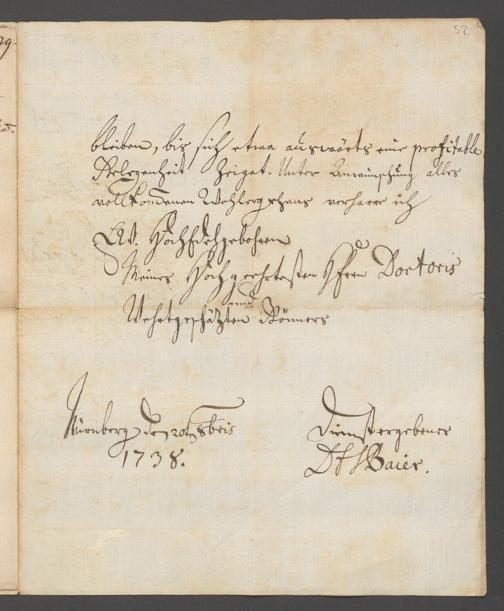 52
bleiben, bis sich etwa auswärts eine profitable
Gelegenheit zeiget. Unter Anwünschung alles
vollkommenen Wohlergehens verharre ich
Ew. HochEdelgebohren
Meines Hochgeehrtesten Herrn Doctoris
und
Wehrtgeschätzten Gönners
Nürnberg den 20 8bris
1738.
Dienstergebener
Baier.